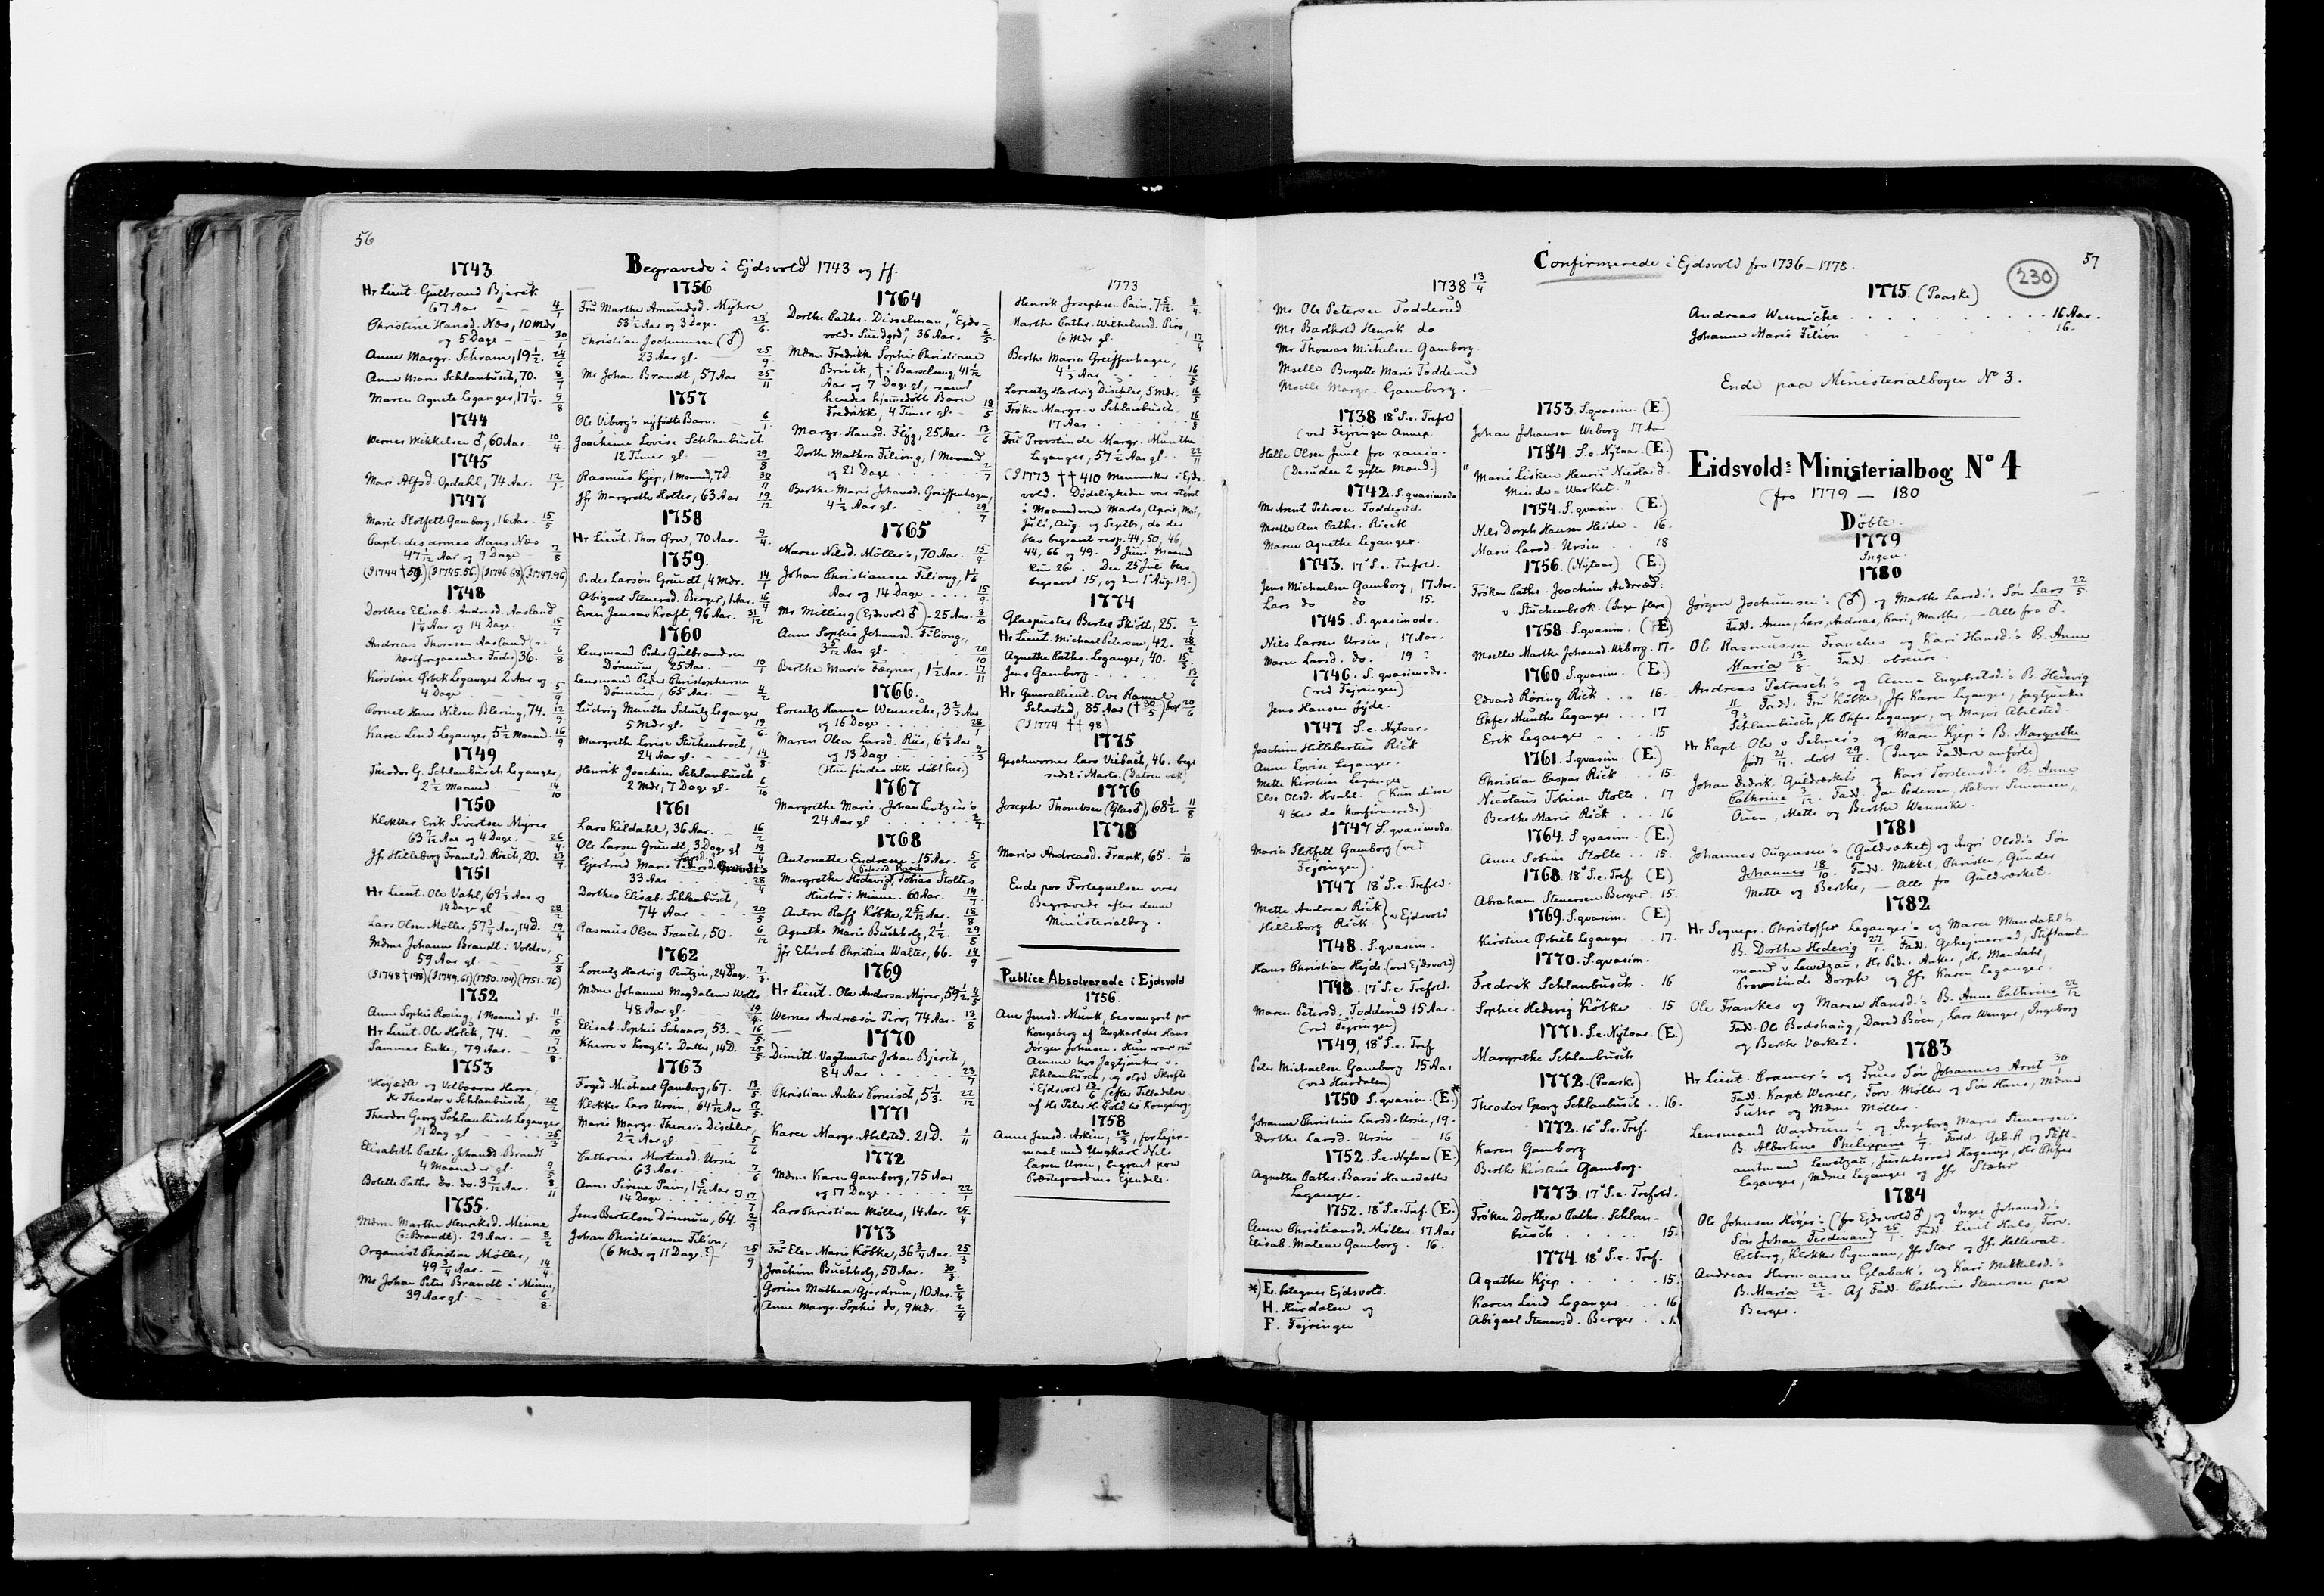 56
Begravede i Ejdsvold 1743 og ff.
1743
Hr Lieut. Gulbrand Bjerck
67 Aar 4/1
Christine Hansd. Næs, 10 Mdr
og 5 Dage 30/1
Anne Margr. Schram, 19 1/2. 24/6
Anne Marie Schlanbusch, 70. 8/7
Maren Agnete Leganger, 17 1/4. 9/8
1744
Wernes Mikkelsen ♂, 60 Aar. 10/4
1745
Mari Alfsd. Opdahl, 74 Aar. 12/1
1747
Marie Slotfett Gamborg, 16 Aar. 15/5
Capt. des armes Hans Næs
47 1/12 Aar og 9 Dage 7/8
(I 1744 † 59) (I 1745. 56) (I 1746. 68) (I 1747. 96)
1748
Dorthea Elisab. Andersd. Aasland
1 1/4 Aar og 14 Dage. 15/7
Andreas Thoresen Aasland (
Fader) 36. 6/8
Kirstine Ørbek Leganger 2 Aar og
4 Dage 5/9
Cornet Hans Nilsen Blering, 74. 12/9
Karen Lind Leganger, 5 1/2 Maaned. 16/9
1749
Theodor G. Schlanbusch Leganger,
2 1/2 Maaned 14/10
1750
Klokker Erik Sivertsen Myrer
63 7/12 Aar og 4 Dage. 26/4
Jfr Hilleborg Frantsd. Rieck, 20. 23/7
1751
Hr Lieut. Ole Vahl, 69 1/3 Aar og
14 Dage gl 28/2
Lars Olsen Möller, 57 3/4 Aar, 14 D. 19/4
Mdme Johanne Brandt i Volden,
59 Aar gl 5/8
(I 1748 † 198) (I 1749. 61) (1750. 104) (1751. 76)
1752
Anne Sophie Rosing, 1 Maaned gl. 11/5
Hr Lieut. Ole Holck, 74. 10/7
Sammes Enke, 79 Aar. 13/8
1753
"Høyædle og Velbaarne Herre,
Hr Theodor v Schlanbusch, 20/2
Theodor Georg Schlanbusch Leganger
1 Dag gl 25/3
Elisabeth Caths. Johansd. Brandt
4 Maaneder gl. 9/5
Bolette Caths do. do. 3 7/12 Aar. 8/11
1755.
Mdme Marthe Henriksd. Minne
(: Brandt). 29 Aar. 8/2
Organist Christian Møller,
49 3/4 Aar. 14/4
Mr Johan Peter Brandt i Minne,
39 Aar gl 6/8
1756
Fru Marthe Amundsd. Myhre
53 1/2 Aar og 3 Dage. 23/6
Christian Jochumsen (♂)
23 Aar gl. 25/9
Mr Johan Brandt, 57 Aar 25/11
1757
Ole Viborg's nyfödte Barn. 6/1
Joachime Lovise Schlanbusch
12 Timer gl. 29/8
Rasmus Kjep, 1 Maaned, 7 D. 30/11
Jfr Margrethe Holter, 63 Aar 19/12
1758
Hr Lieut. Thor Ørn, 70 Aar. 9/4
1759.
Peder Larsøn Grundt, 4 Mdr. 14/1
Abigael Stenersd. Berger, 1 Aar. 16/4
Even Jensen Kraft, 96 Aar. 31/12
1760
Lensmand Peder Gulbrandsen
Dønnum, 25 Aar. 10/1
Lensmand Peder Christophersen
Dønnum, 65 Aar. 4/2
Ludvig Munthe Schutz Leganger
5 Mdr gl. 19/6
Margrethe Lovise Stuchenbroch,
24 Aar gl. 14/8
Henrik Joachim Schlanbusch
2 Mdr, 7 Dage gl. 6/10
1761
Lars Kildahl, 36 Aar. 16/2
Ole Larsen Grundt, 3 Dage gl 19/4
Gjertrud Marie Grundt's
33 Aar 28/4
Dorthea Elisab. Schlanbusch,
74 Aar 20/5
Rasmus Olsen Franck, 50. 6/12
1762
Lorentz Hartvig Pentzin, 24 Dage. 7/3
Mdme Johanne Magdalene Wolts
48 Aar gl. 19/4
Elisab. Sophie Schaars, 53. 16/5
v Krogh's Datter, 14 D. 25/5
1763
Foged Michael Gamborg, 67. 13/5
Klokker Lars Ursin, 64 1/12 Aar 17/5
Marie Margr. Theresia Dischler,
2 1/2 Aar gl. 5/6
Cathrine Mortensd. Ursin
63 Aar. 7/6
Anne Sirene Pain, 1 5/12 Aar og
14 Dage 17/7
Jens Bertelsen Dønnum, 64. 2/9
Johan Christiansen Filion,
(6 Mdr og 11 Dage.?) 25/9
1764
Dorthe Caths. Disselman, "Ejds-
volds Sundgrd", 36 Aar. 6/5
Mdme Fredrikke Sophie Christiane
Brück, † i Barselseng, 41 1/12
Aar og 7 Dage gl, samt
hendes hjemmedøbte Barn
Fredrikke, 4 Timer gl. 18/5
Margr. Hansd. Flyg, 25 Aar. 13/6
Dorthe Mathea Filiong, 1 Maaned
og 21 Dage 2/7
Berthe Marie Johansd. Greiffenhagen,
4 1/3 Aar gl. 29/7
1765
Maren Nilsd. Möller's, 70 Aar. 15/9
Johan Christiansen Filiong, 1 1/6
Aar og 14 Dage 15/9
Mr Milling (Ejdsvold ♂). 25 Aar. 3/10
Anne Sophie Johansd. Filiong,
3 5/12 Aar gl. 20/10
Berthe Marie Fegner, 1 1/2 Aar. 17/11
1766
Lorentz Hansen Wennecke, 3 2/3 Aar
og 16 Dage 28/1
Maren Olea Larsd. Riis, 6 1/3 Aar
og 13 Dage 9/3
(Hun findes ikke döbt her.)
1767
Margrethe Marie Johan Lentzin's
24 Aar gl 2/7
1768
Antonette Endresen. 15 Aar. 5/6
(Petersd. Rasch)
Margrethe Hedevig, Tobias Stoltes
Hustru i Minne. 60 Aar. 14/7
Anton Raff Köbke, 2 5/12 Aar. 18/8
Agnethe Marie Buchholz, 2 1/2. 29/8
Jfr Elisab Christine Walter, 66. 14/9
1769
Hr Lieut. Ole Andersen Myrer, 59 1/2. 4/5
Werner Andræsön Piro, 74 Aar. 13/8
1770
Dimitt. Vagtmester Johan Bjerch,
84 Aar 23/7
Christian Anker Cornisch, 5 1/3. 22/12
1771
Karen Margr. Abelsted. 21 D. 1/11
1772
Mdme Karen Gamborg, 75 Aar
og 17 Dage 22/1
Lars Christian Möller, 14 Aar. 25/4
1773
Fru Elen Marie Köbke, 36 3/4 Aar. 25/3
Joachim Buchholz, 50 Aar. 30/3
Gorine Mathea Gjerdrum, 10 Aar. 2/4
Anne Margr. Sophie do, 9 Mdr. 2/4
1773
Henrik Josephsen Pain. 7 5/12. 8/4
Marthe Caths. Wilhelmsd. Piro,
6 Mdr gl. 17/4
Berthe Maria Greiffenhagen,
4 1/3 Aar 16/5
Lorentz Hartvig Dischler, 5 Mdr. 16/5
Frøken Margr. v Schlanbusch,
17 Aar 16/8
Fru Provstinde Margr. Munthe
Leganger, 57 1/2 Aar gl. 22/11
(I 1773 †† 410 Mennesker i Ejds-
vold. Dödeligheden var störst
i Maanederne Marts, April, Mai,
Juli, Aug. og Septbr, da der
blev begravet resp. 44, 50, 46,
44, 66 og 49. I Juni Maaned
kun 26. Den 25 Juli blev
begravet 15, og den 1 Aug. 19.)
1774
Glaspuster Berthe Skiött, 25. 2/1
Hr Lieut. Michael Petersen, 42. 28/2
Agnethe Caths. Leganger, 40. 15/5
Jens Gamborg 13/6
Hr Generallieut. Ove Ramel
Sehested, 85 Aar († 30/5) begr 20/6
(I 1774 †† 98)
1775
Geschworner Lars Viebach, 46. begr
sidst i Marts. (Datoen væk)
1776
Joseph Thombsen (Glas ♂), 68 1/2. 11/8
1778
Maria Andreasd. Frank, 65. 1/10
Ende paa Fortegnelsen over
Begravede efter denne
Ministerialbog.
Publice Absolverede i Ejdsvold
1756.
Ane Jensd. Munk, besvangret paa
Kongsberg af Ungkarl des Hans
Jørgen Johnsen. Hun var nu
Amme hos Jagtjunker v.
Schlanbusch, og stod Skrifte
i Ejdsvold 13/6 (efter Tilladelse
af Hr Peter H. Gold til Kongsberg)
1758
Anne Jensd. Asken, 12/3, for Lejer-
maal med Ungkarl Nils
Larsen Ursin, begaaet paa
Præstegaardens Ejendele.
Confirmerede i Ejdsvold fra 1736–1778.
230
57
1738 13/4
Mr Ole Petersen Todderud
Mr Barthold Henrik do
Mr Thomas Michelsen Gamborg
Mselle Bergette Marie Todderud
Mselle Margr. Gamborg.
1738 18' S. e. Trefold
(ved Fejringen Annex
Helle Olsen Juul fra xania.
(Desuden 2 gifte Mænd.)
1742. S. quasimodo
Mr Arent Petersen Todderud.
Mselle Ane Caths. Rieck
Maren Agnethe Leganger.
1743. 17' S. e. Trefold.
Jens Michaelsen Gamborg, 17 Aar.
Lars do do 15.
1745. S. quasimodo.
Nils Larsen Ursin, 17 Aar.
Maren Larsd. do. 19 ?
1746. S. quasimodo.
(ved Fejringen)
Jens Hansen Gjde.
1747 S. e. Nytaar.
Joachim Hillebertus Rick
Anne Lovise Leganger.
Mette Kirstine Leganger
Else Olsd. Hvahl. (Kun disse
4 blev da konfirmerede)
1747 S. quasimodo
Maria Slotfett Gamborg (ved
Fejringen)
1747 18' S. e. Trefold.
Mette Andrea Rick } v Ejdsvold
Helleborg Rick.
1748. S. quasim.
Hans Christian Hejde. (ved Ejdsvold)
1748. 17' S. e. Trefold.
Maren Petersd. Todderud 15 Aar.
(ved Fejringen)
1749, 18' S. e. Tref.
Peter Michaelsen Gamborg 15 Aar
(ved Hurdalen)
1750 S. quasim. (E.)*
Johanne Christine Larsd. Ursin, 19.
Dorthe Larsd. Ursin 16
1752. S. e. Nytaar (E.)
Agnethe Caths. Barsö Hansdatter
Leganger.
1752. 18' S. e. Tref. (E.)
Anne Christiansd. Möller 17 Aar
Elisab. Malene Gamborg. 16.
*) E. betegner Ejdsvold.
H. Hurdalen og
F. Fejringen
1753. S. quasim. (E.)
Johan Johansen Wiborg 17 Aar.
1754. S. e. Nytaar. (E.)
"Marie Lisken Henric Nicolai d.
Minde=Værket."
1754. S. quasim. (E.)
Nils Dorph Hansen Heide 16.
Marie Larsd. Ursin 18
1756. (Nytaar) (E.)
Frøken Caths. Joachim Andread.
v. Stuckenbrok. (Ingen flere)
1758. S. quasim. (E)
Mselle Marthe Johansd. Wiborg. 17.
1760. S. quasim. (E.)
Edvard Röring Rick 16.
Chfer Munthe Leganger 17
Erik Leganger 15
1761. S. quasim. (E.)
Christian Caspar Rick 15.
Nicolaus Tobiesen Stolte 17
Berthe Marie Rick 16
1764. S. quasim. (E.)
Anne Sobine Stolte 15.
1768. 18' S. e. Tref. (E)
Abraham Stenersen Berger 15.
1769. S. quasim. (E.)
Kirstine Ørbech Leganger 17.
1770. S. quasim.
Fredrik Schlanbusch 16
Sophie Hedevig Köbke 15
1771. S. e. Nytaar. (E.)
Margrethe Schlanbusch
1772. (Paaske)
Theodor Georg Schlanbusch 16.
1772. 16' S. e. Tref.
Karen Gamborg
Berthe Kirstine Gamborg.
1773. 17' S. e. Trefold.
Frøken Dorthea Caths. Schlan-
busch 15.
1774. 18' S. e. Tref.
Agathe Kjep 15.
Karen Lind Leganger 16
Abigael Stenersd. Berger
1775. (Paaske)
Andreas Wennicke 16 Aar.
Johanne Marie Filion 16.
Ende paa Ministerialbogen No 3.
Eidsvolds Ministerialbog No 4
(fra 1779 — 180
Döbte.
1779
Ingen.
1780
Jørgen Jochumsen's (♂) og Marthe Larsd.'s Søn Lars 22/5.
Fadd. Anne, Lars, Andreas, Kari, Marthe, — Alle fra ♂.
Ole Rasmussen Franche's og Kari Hansd.'s B. Anne
Maria 13/8. Fadd. obscure.
Andreas Petrosch's og Anne Engebretsd.'s B. Hedevig
11/9. Fadd. Fru Köbke, Jfr Karen Leganger, Jagtjunker
Schlanbusch, Hr Chfer Leganger, og Major Abelsted.
Hr Kapt. Ole v Selmer's og Maren Kjep's B. Margrethe
født 21/11. døbt 29/11. (Ingen Faddere anførte)
Johan Didrik Guldværkets og Kari Torstensd.'s B. Anne
Cathrine 3/12. Fadd. Jan Pedersen, Halvor Simonsen,
Arien, Mette og Berthe Wennike.
1781
Johannes Ougensen's (Guldværket) og Ingri Olsd.'s Søn
Johannes 18/10. Fadd. Mikkel, Christen, Gunder
Mette og Berthe, — Alle fra Guldværket.
1782
Hr Sognepr. Christoffer Leganger's og Maren Mandahl's
B. Dorthe Hedevig 27/1. Fadd. Gehejmeraad, Stiftamt-
mand v Lewetzau, Hr Peder Anker, Hr Mandahl,
Provstinde Dorph og Jfr Karen Leganger,
Ole Frankes og Maren Hansd.'s B. Anne Cathrine 22/12
Fadd. Ole Bodshaug, David Böen, Lars Wenger, Ingeborg
og Berthe Værket.
1783
Hr Lieut. Cramer's og Frues Søn Johannes Arnt 30/1
Fadd. Kapt Werner, Forv. Møller og Søn Hans, Mdme
Suhr og Mdme Möller.
Lensmand Wardrum's og Ingeborg Marie Stenersen's
B. Albertine Philippine 1/7. Fadd. Geh. R og Stift-
amtmand Lewetzau, Justitsraad Hagerup, Hr Chfer
Leganger, Mdme Leganger og Jfr Stæhr
1784
Ole Johnsen Höyer's (fra Ejdsvold ♂) og Inger Johansd.'s
Søn Johan Ferdinand 25/1. Fadd. Lieut Hals, Forv.
Coeberg, Klokker Pegmann, Jfr Stær og Jfr Hellevat.
Andreas Hermansen Glabak's og Kari Mikkelsd.'s
B. Maria 22/2. Af Fadd. Cathrine Stenersen paa
Berger.